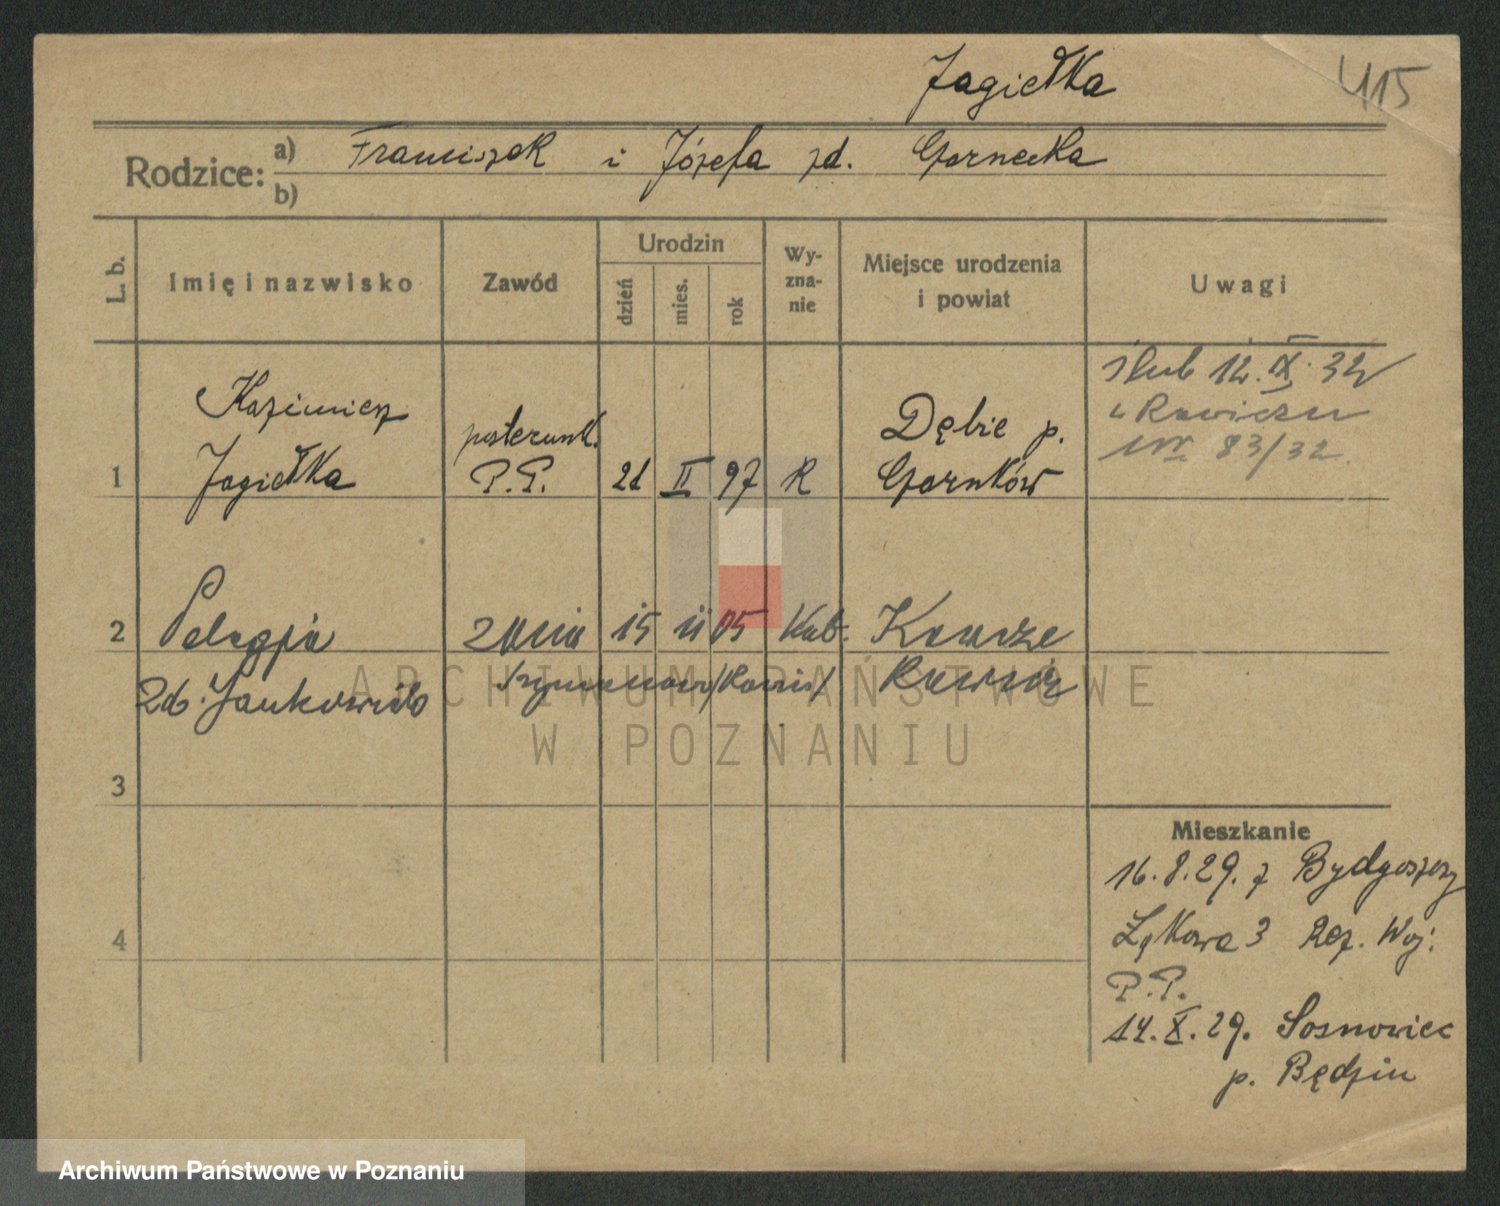 Jagiełka
415
Rodzice: a) Franciszek i Józefa zd. Gornecka
b)
L. b.
Imię i nazwisko
Zawód
Urodzin
dzień
mies.
rok
Wy-
zna-
nie
Miejsce urodzenia
i powiat
Uwagi
ślub 12. IX. 32
w Rawiczu
Nr 83/32.
Kazimierz
posterunk.
Dębie p.
1 Jagiełka P.P. 21 II 97 R Gornków
2 Pelagja żona 15 11 05 Kat.
zd. Jankowiak
3
4
Mieszkanie
16.8.29. z Bydgoszczy
Żąkowa 3 Rez. Woj.
P.P.
14.X.29. Sosnowiec
p. Będzin
ARCHIWUM PAŃSTWOWE
W POZNANIU
Archiwum Państwowe w Poznaniu